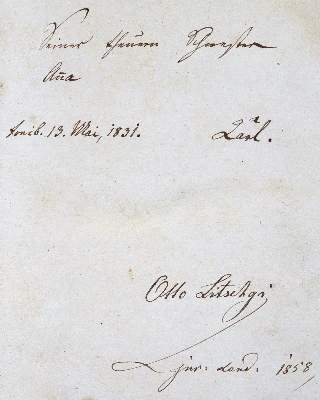 Seiner theuern Schwester
Anna
13. Mai, 1831. Karl.
Otto Litschgi
jur: cand: 1858,